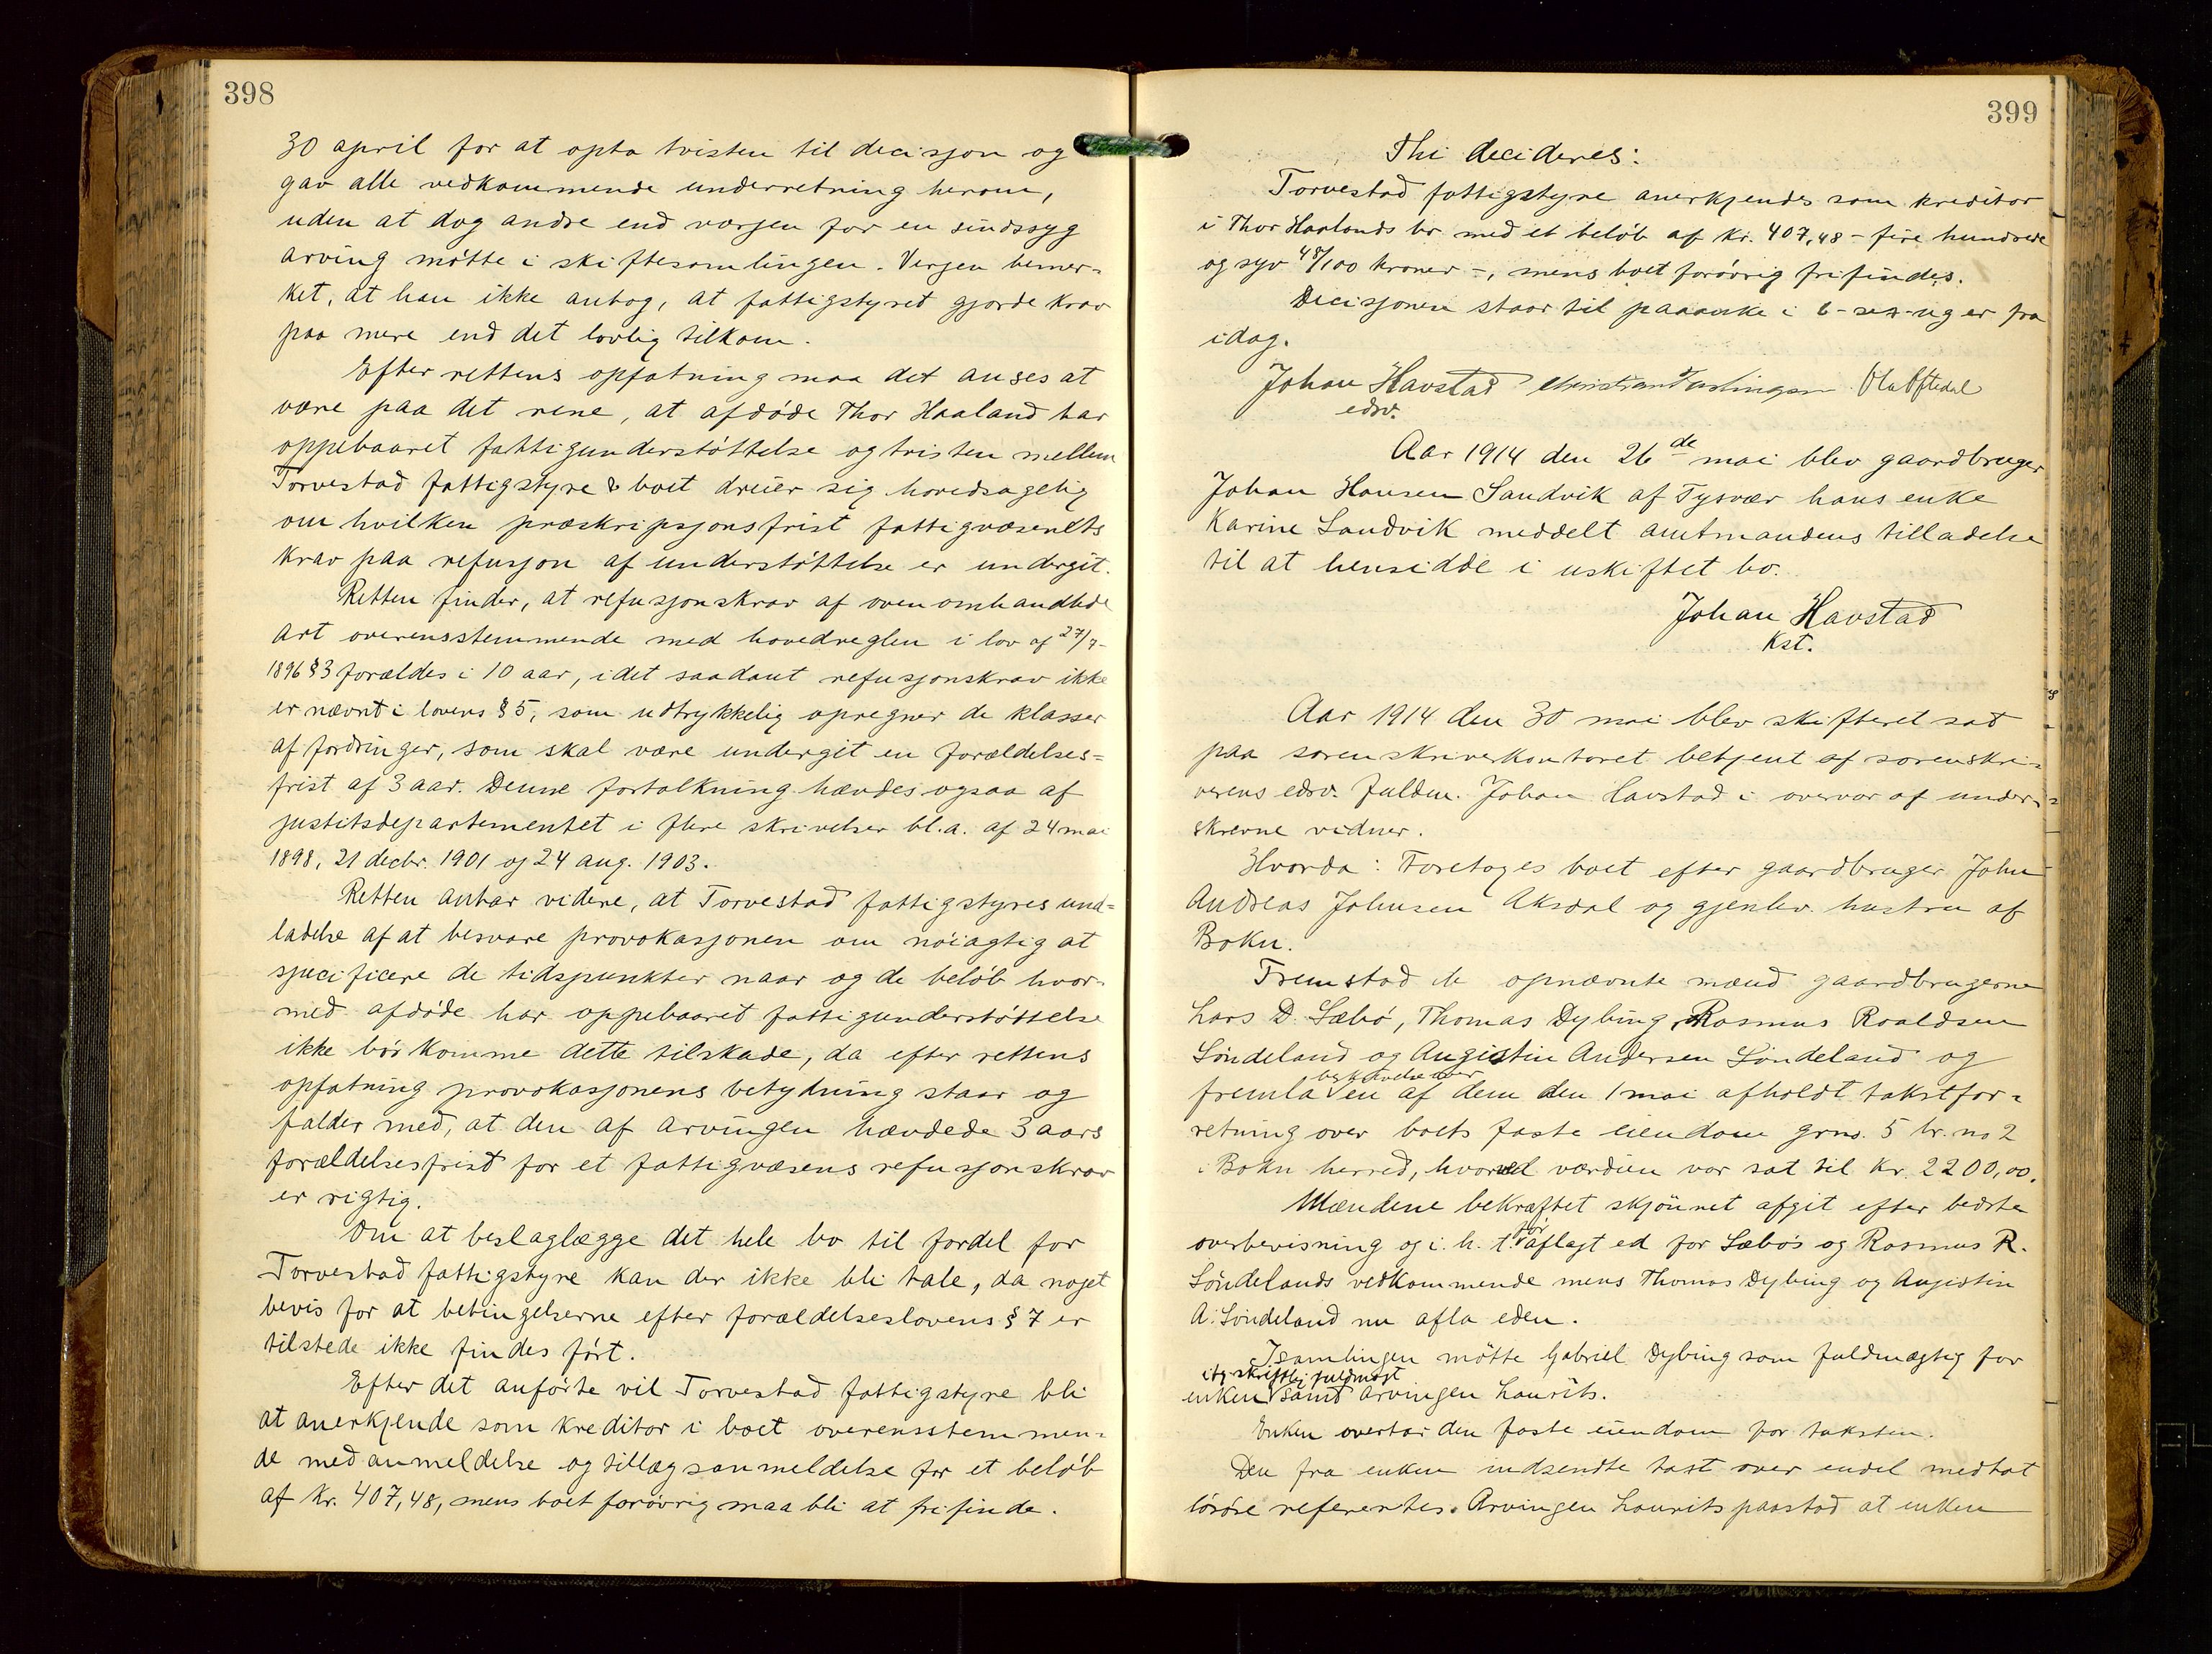 398
30 april for at opta tvisten til decisjon og
gav alle vedkommende underretning herom,
uden at dog andre end værgen for en sindssyg
arving møtte i skiftesamlingen. Vergen bemer-
ket, at han ikke antog, at fattigstyret gjorde krav
paa mere end det lovlig tilkom.
Efter rettens opfatning maa det anses at
være paa det rene, at afdøde Thor Haaland har
oppebaaret fattigunderstøttelse og tvisten mellem
Torvestad fattigstyre & boet dreier sig hovedsagelig
om hvilken præskripsjonsfrist fattigvæsenets
krav paa refusjon af understøttelse er undergit.
Retten finder, at refusjonskrav af ovenomhandlede
art overensstemmende med hovedreglen i lov af 27/7-
1896 §3 forældes i 10 aar, idet saadant refusjonskrav ikke
er nævnt i lovens §5, som udtrykkelig opregner de klasser
af fordringer, som skal være undergit en forældelses=
frist af 3 aar. Denne fortolkning hævdes ogsaa af
justitsdepartementet i flere skrivelser bl.a. af 24 mai
1898, 21 decbr. 1901 og 24 aug. 1903.
Retten antar videre, at Torvestad fattigstyres und=
ladelse af at besvare provokasjonen om nøiagtig at
specificere de tidspunkter naar og de beløb hvor-
med afdøde har oppebaaret fattigunderstøttelse
ikke bør komme dette tilskade, da efter rettens
opfatning provokasjonens betydning staar og
falder med, at den af arvingen hævdede 3 aars
forældelsesfrist for et fattigvæsens refusjonskrav
er rigtig.
Om at beslaglægge det hele bo til fordel for
Torvestad fattigstyre kan der ikke bli tale, da noget
bevis for at betingelserne efter forældelseslovens §7 er
tilstede ikke findes ført.
Efter det anførte vil Torvestad fattigstyre bli
at anerkjende som kreditor i boet overensstemmen-
de med anmeldelse og tillægsanmeldelse for et beløb
af kr. 407,48, mens boet forøvrig maa bli at frifinde.
399
Thi decideres:
Torvestad fattigstyre anerkjendes som kreditor
i Thor Haalands bo med et beløb af kr. 407,48 - fire hundrede
og syv 48/100 kroner -, mens boet forøvrig frifindes.
Decisjonen staar til paaanke i 6-sex-uger fra
idag.
Johan Havstad Olaf
edsv.
Aar 1914 den 26de mai blev gaardbruger
Johan Hansen Sandvik af Tysvær hans enke
Karine Sandvik meddelt amtmandens tilladelse
til at hensidde i uskiftet bo.
Johan Havstad
Kst.
Aar 1914 den 30 mai blev skifteret sat
paa sorenskriverkontoret betjent af sorenskri-
verens edsv. fuldm. Johan Havstad i overvær af under-
skrevne vidner.
Hvorda: Foretoges boet efter gaardbruger John
Andreas Johnsen Aksdal og gjenlev. hustru af
Bokn.
Fremstod de opnævnte mænd gaardbrugerne
Lars D. Sæbø, Thomas Dybing, Rasmus Roaldsen
Løndeland og Augistin Andersen Løndeland og
fremla bekræftelse over en af dem den 1 mai afholdt takstfor-
retning over boets faste eiendom grno. 5 br. no 2
i Bokn herred, hvorved værdien var sat til kr. 2200,00.
Mændene bekræftet skjønnet afgit efter bedste
overbevisning og i h. t. før aflagt ed for Sæbøs og Rasmus R.
Løndelands vedkommende mens Thomas Dybing og Augistin
A. Løndeland nu afla eden.
I samlingen møtte Gabriel Dybing som fuldmægtig for
enken ifg. skriftlig fuldmagt samt arvingen Laurits.
Enken overtar den faste eiendom for taksten.
Den fra enken indsendte takst over endel medtat
løsøre refereertes. Arvingen Laurits paastod at enken